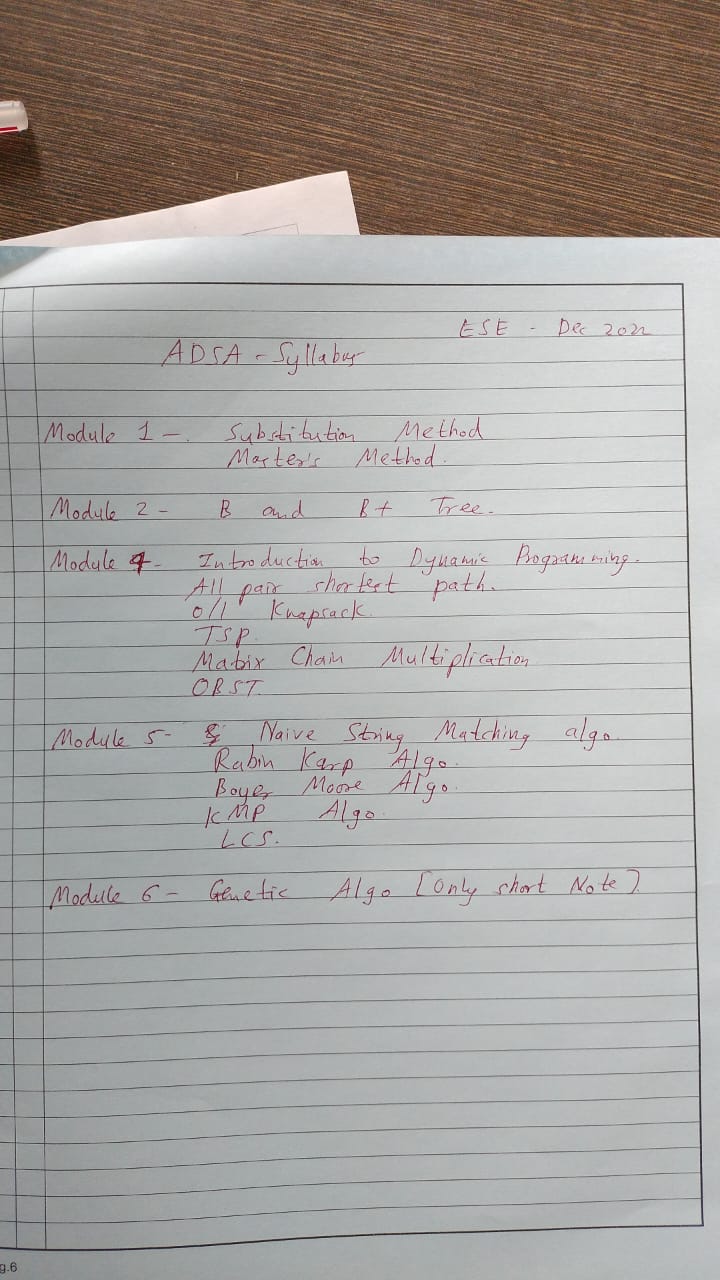 ESE - Dec 2022
ADSA - Syllabus
Module 1 - Substitution Method
Master's Method.
Module 2 - B and B+ Tree.
Module 4 - Introduction to Dynamic Programming.
All pair shortest path.
0/1 Knapsack.
TSP.
Matrix Chain Multiplication
OBST.
Module 5 - Naive String Matching algo.
Rabin Karp Algo.
Boyer Moore Algo.
KMP Algo.
LCS.
Module 6 - Genetic Algo [Only short Note]
g.6